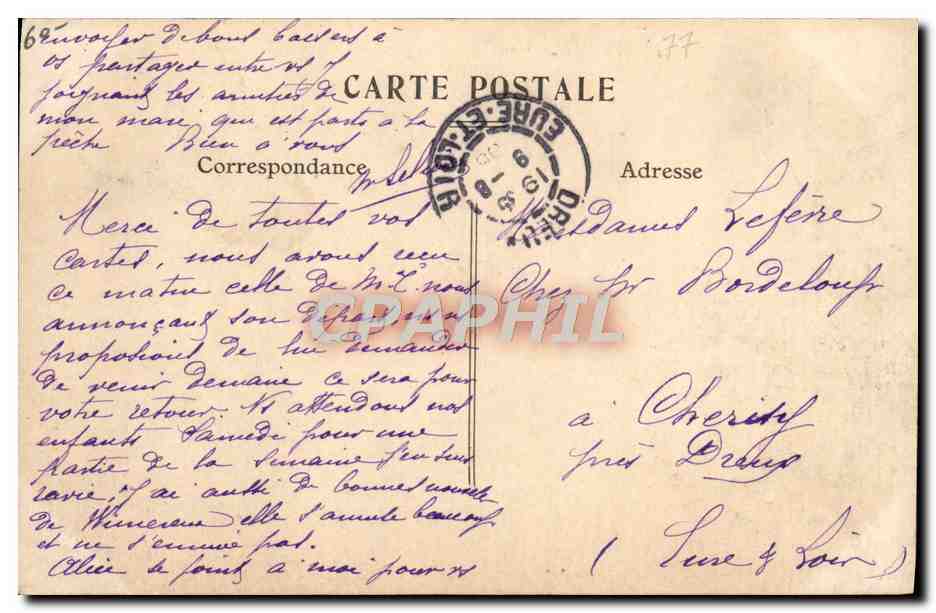 68
77
CARTE POSTALE
Correspondance
Adresse
DREUX
EURE-ET-LOIR
Merci de toutes vos
cartes, nous avons recu
ce matin celle de Mr L. nous
annonçant son départ
proposions de lui demander
de venir demain ce sera pour
votre retour. Ns attendons nos
enfants Samedi pour une
partie de la semaine j'en suis
ravie, J'ai aussi de bonnes nouvelles
de Wimereux elle s'amuse beaucoup
et ne s'ennuie pas.
Alice se joint à moi pour vs
envoyer de bons baisers à
vs partager entre vs J
joignant les amitiés de
mon mari qui est parti a la
pêche Bien a vous
Mesdames Lefèvre
Chez Mr
à Cherisy
près Dreux
(Eure & Loir)
CPAPHIL